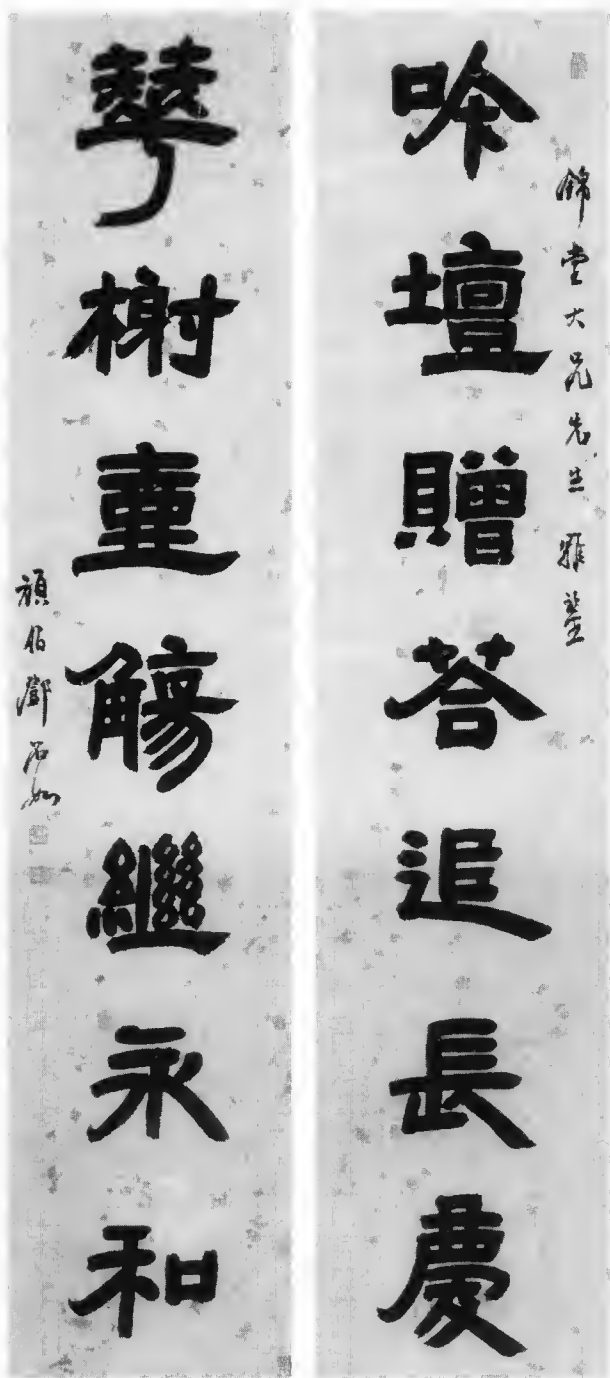 錦堂大兄先生雅鑒
吟壇贈荅追長慶
琴榭壺觴繼永和
頑伯鄧石如